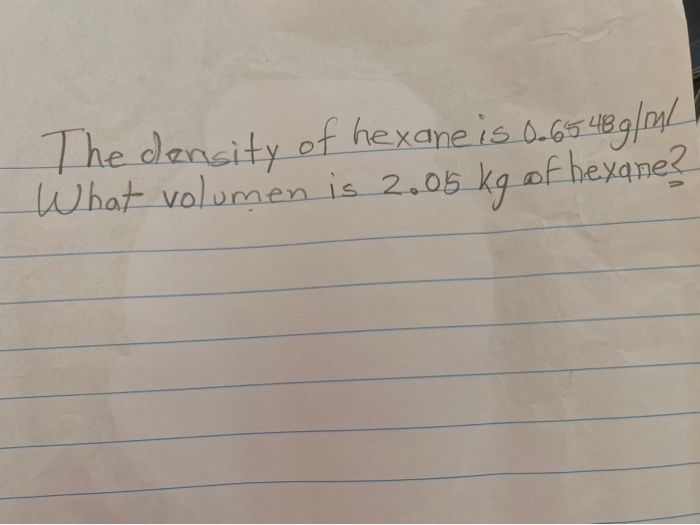 The density of hexane is 0.6548g/ml
What volumen is 2.05 kg of hexane?